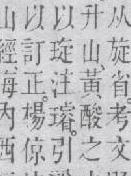 从旋省考文
升山、黃酸之
以琁注璿。引
以訂正。楊倞
山經海内西